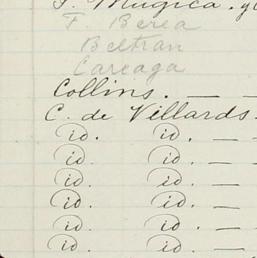 F. Mugica.
F. Berea
Beltran
Careaga
Collins. — —
C. de Villards.
id. id. —
id. id. —
id. id. —
id. id. —
id. id. —
id. id. —